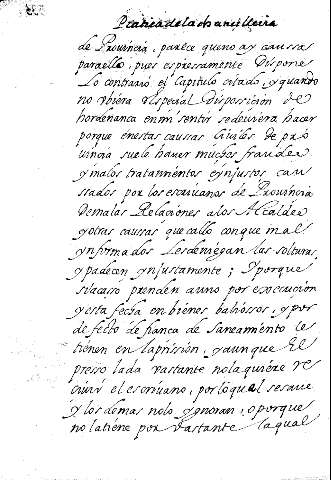 Pratica de la chancilleria
de Provincia, parece que no ay caussas
para ello, pues espressamente Dispone
Lo contrario el Capitulo citado, y quando
no ubiera especial Disposicion de
hordenanca en mi sentir se deuiera hacer
porque en estas caussas Ciuiles de pro
uincia suele hauer muchos fraudes
y malos tratamientos e ynjustos cau
ssados por los escriuanos de Prouincia
De malas Relaciones a los Alcaldes
y otras causas que callo con que mal
ynformados Les deniegan las solturas
y padecen ynjustamente; Y porque
si acasso prenden a uno por execucion
y esta fecha en bienes baliosos, y por
defecto de fianca de Saneamiento le
tienen en la prission, y aunque El
presso la da vastante no la quiere re
ciuir el escriuano, por lo qual se save
y los demas no lo ygnoran, o porque
no la tiene por vastante la qual